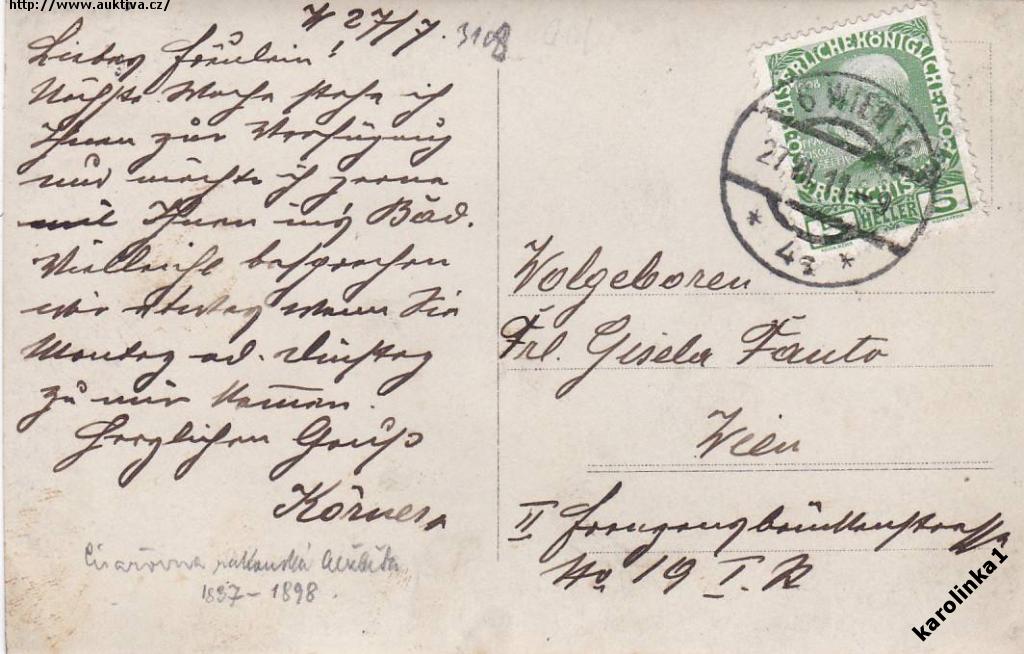 http://www.auktiva.cz/
27/7.
3108
Liebes Fräulein!
Nächste Woche stehe ich
Ihnen zur Verfügung
und möchte ich gerne
mit Ihnen in's Bad.
Vielleicht besprechen
wir etwas wenn Sie
Montag od. Dinstag
zu mir kommen.
Herzlichen Gruß
Körner
Císařovna rakouská Alžběta
1837–1898.
KAISERLICHEKÖNIGLICHE
ÖSTERREICHIS
5 HELLER 5
6 WIEN
27.VII.11-9
* 4a *
Wolgeboren
Frl. Gisela Fanto
Wien
II
No 19 I.
karolinka1